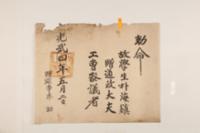 勅命
故學生朴海鎭
贈通政大夫
工曹參議者
光武四年五月 日